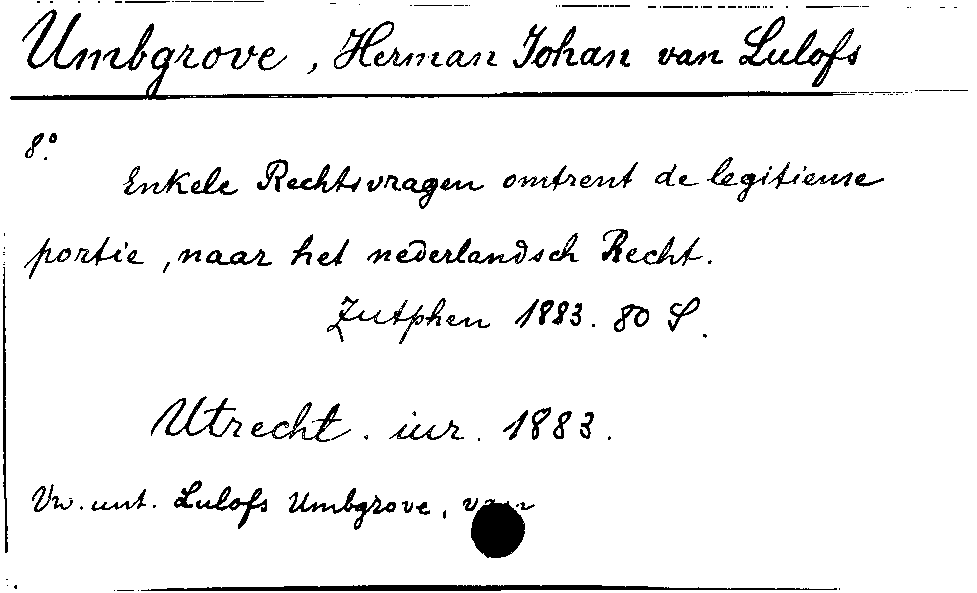 Umbgrove, Herman Johan van Lulofs
8°.
Enkele Rechtsvragen omtrent de legitieme
portie, naar het nederlandsch Recht.
Zutphen 1883. 80 S.
Utrecht. iur. 1883.
Vw. unt. Lulofs Umbgrove, van